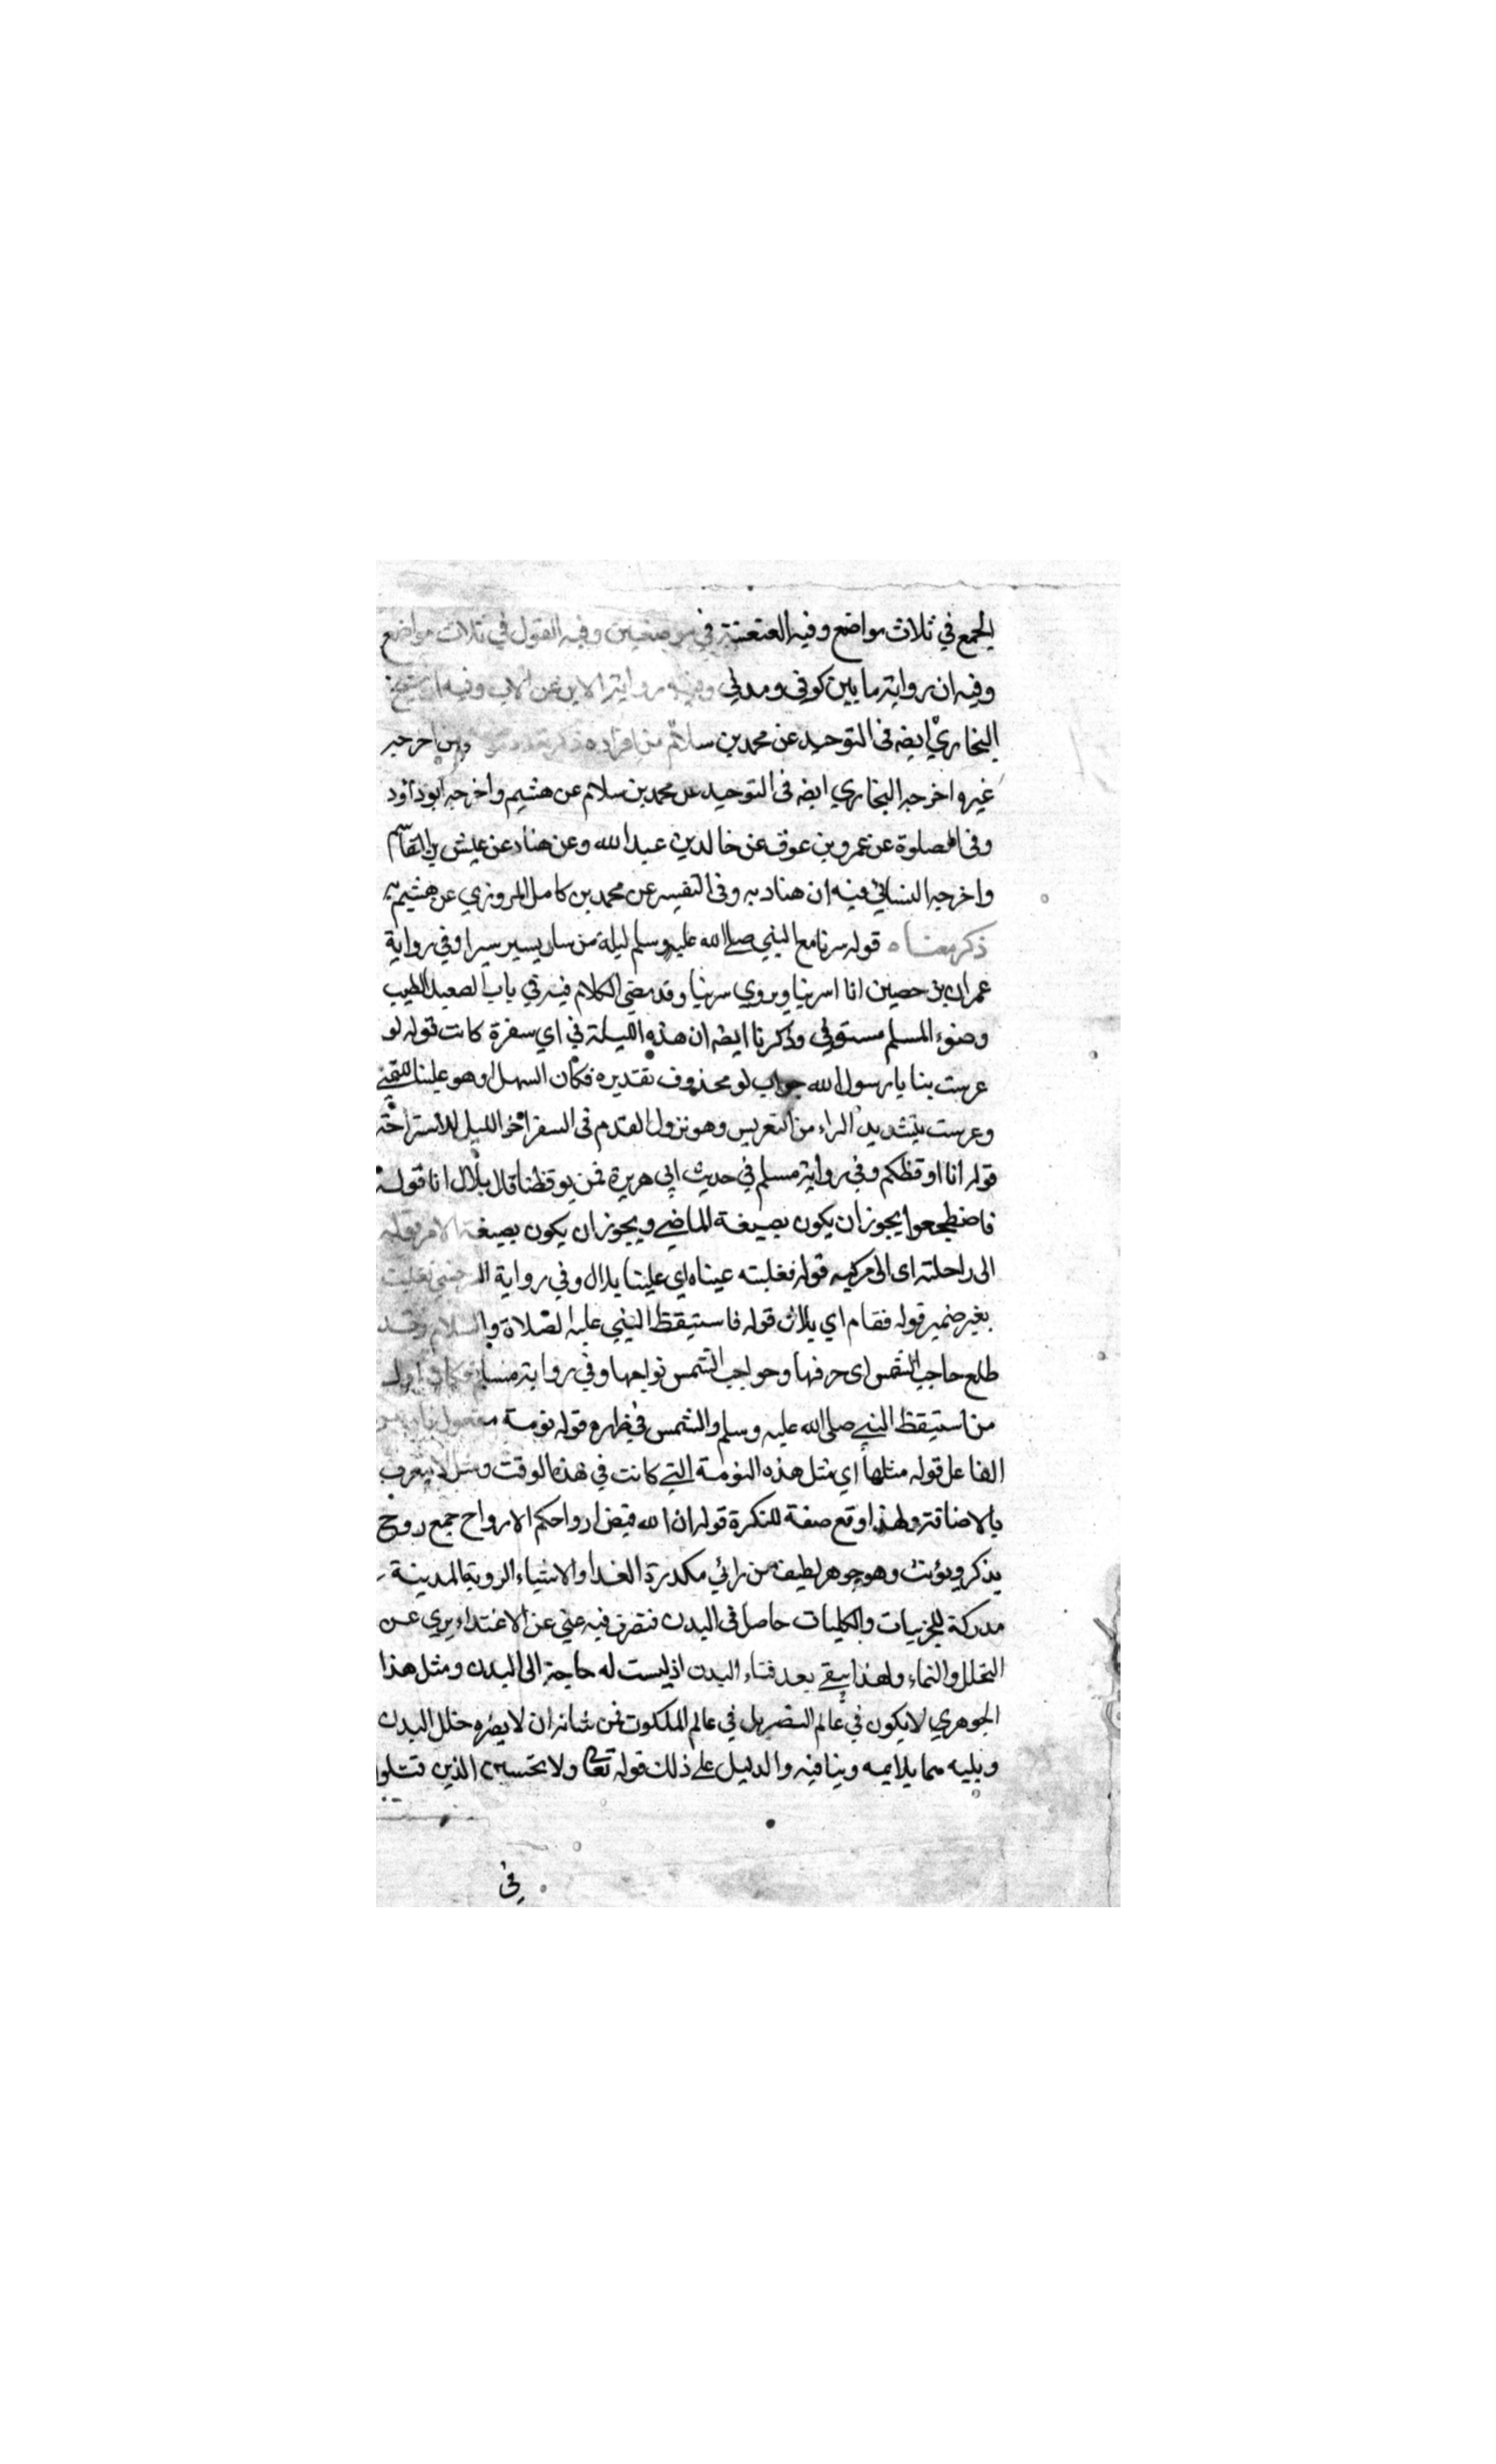 الجمع في ثلاث مواضع وفيه العنعنة في موضعين وفيه القول في ثلاث مواضع
وفيه ان رواية ما بين كوفي ومدني وفيه رواية الابن عن الاب وفيه ان شيخ
البخاري ايضه في التوحيد عن محمد بن سلام من افراده ذكر تعدد ومن اخرجه
غيره اخرجه البخاري ايضه في التوحيد عن محمد بن سلام عن هشيم واخرجه ابو داود
وفي الصلوة عن عمرو بن عوف عن خالد بن عبد الله وعن هناد عن عيش بن القاسم
واخرجه النسائي فيه ان هناد به وفي التفسير عن محمد بن كامل المروزي عن هشيم به
ذكر معناه قوله سرنا مع النبي صلى الله عليه وسلم ليلة من سار يسير سيرا وفي رواية
عمران بن حصين انا اسرينا ويروي سرينا وقد مضى الكلام فيه في باب الصعيد الطيب
وضوء المسلم مستوفي وذكرنا ايضه ان هذه الليلة في اي سفرة كانت قوله لو
عرست بنا يا رسول الله جواب لو محذوف تقديره فكان السهل وهو علينا للقيى
وعرست بتشديد الراء من التعريس وهو نزول القدم في السفر اخر الليل للاستراحة
قوله انا اوقظكم وفي رواية مسلم في حديث ابي هريرة فمن يوقظنا قال بلال انا قوله
فاضطجعوا يجوز ان يكون بصيغة الماضي ويجوز ان يكون بصيغة الامر قوله
الى راحلته اى الى مركبه قوله فغلبته عيناه اي عليتا بلال وفي رواية السرخسي فغلبت
بغير ضمير قوله فقام اي بلال قوله فاستيقظ النبي عليه الصلاة والسلام وقد
طلع حاجب الشمس اى حرفها وحواجب الشمس نواحها وفي رواية مسلم فكان اول
من استيقظ النبي صلى الله عليه وسلم والشمس في ظهره قوله نومة مفعول ناب عن
الفاعل قوله مثلها اي مثل هذه النومة التي كانت في هذه الوقت ومثل لا يتعرف
بالاضافة ولهذا وقع صفة للنكرة قوله ان الله قبض ارواحكم الارواح جمع روح
يذكر ويؤنث وهو جوهر لطيف من رائي مكدرة الغدا والاشياء الروية المدينة
مدركة للجزييات والكليات حاصل في البدن فتصرف فيه عني عن الاغتداء يري عن
التحلل والنماء ولهذا يبقى بعد فناء البدن اذ ليست له حاجة الى البدن ومثل هذا
الجوهري لا يكون في عالم النصر بل في عالم الملكوت فمن شانه ان لا يضره خلل البدن
ويليه مما يلايمه وينافيه والدليل على ذلك قوله تعالى ولا تحسبن الذين قتلوا
في